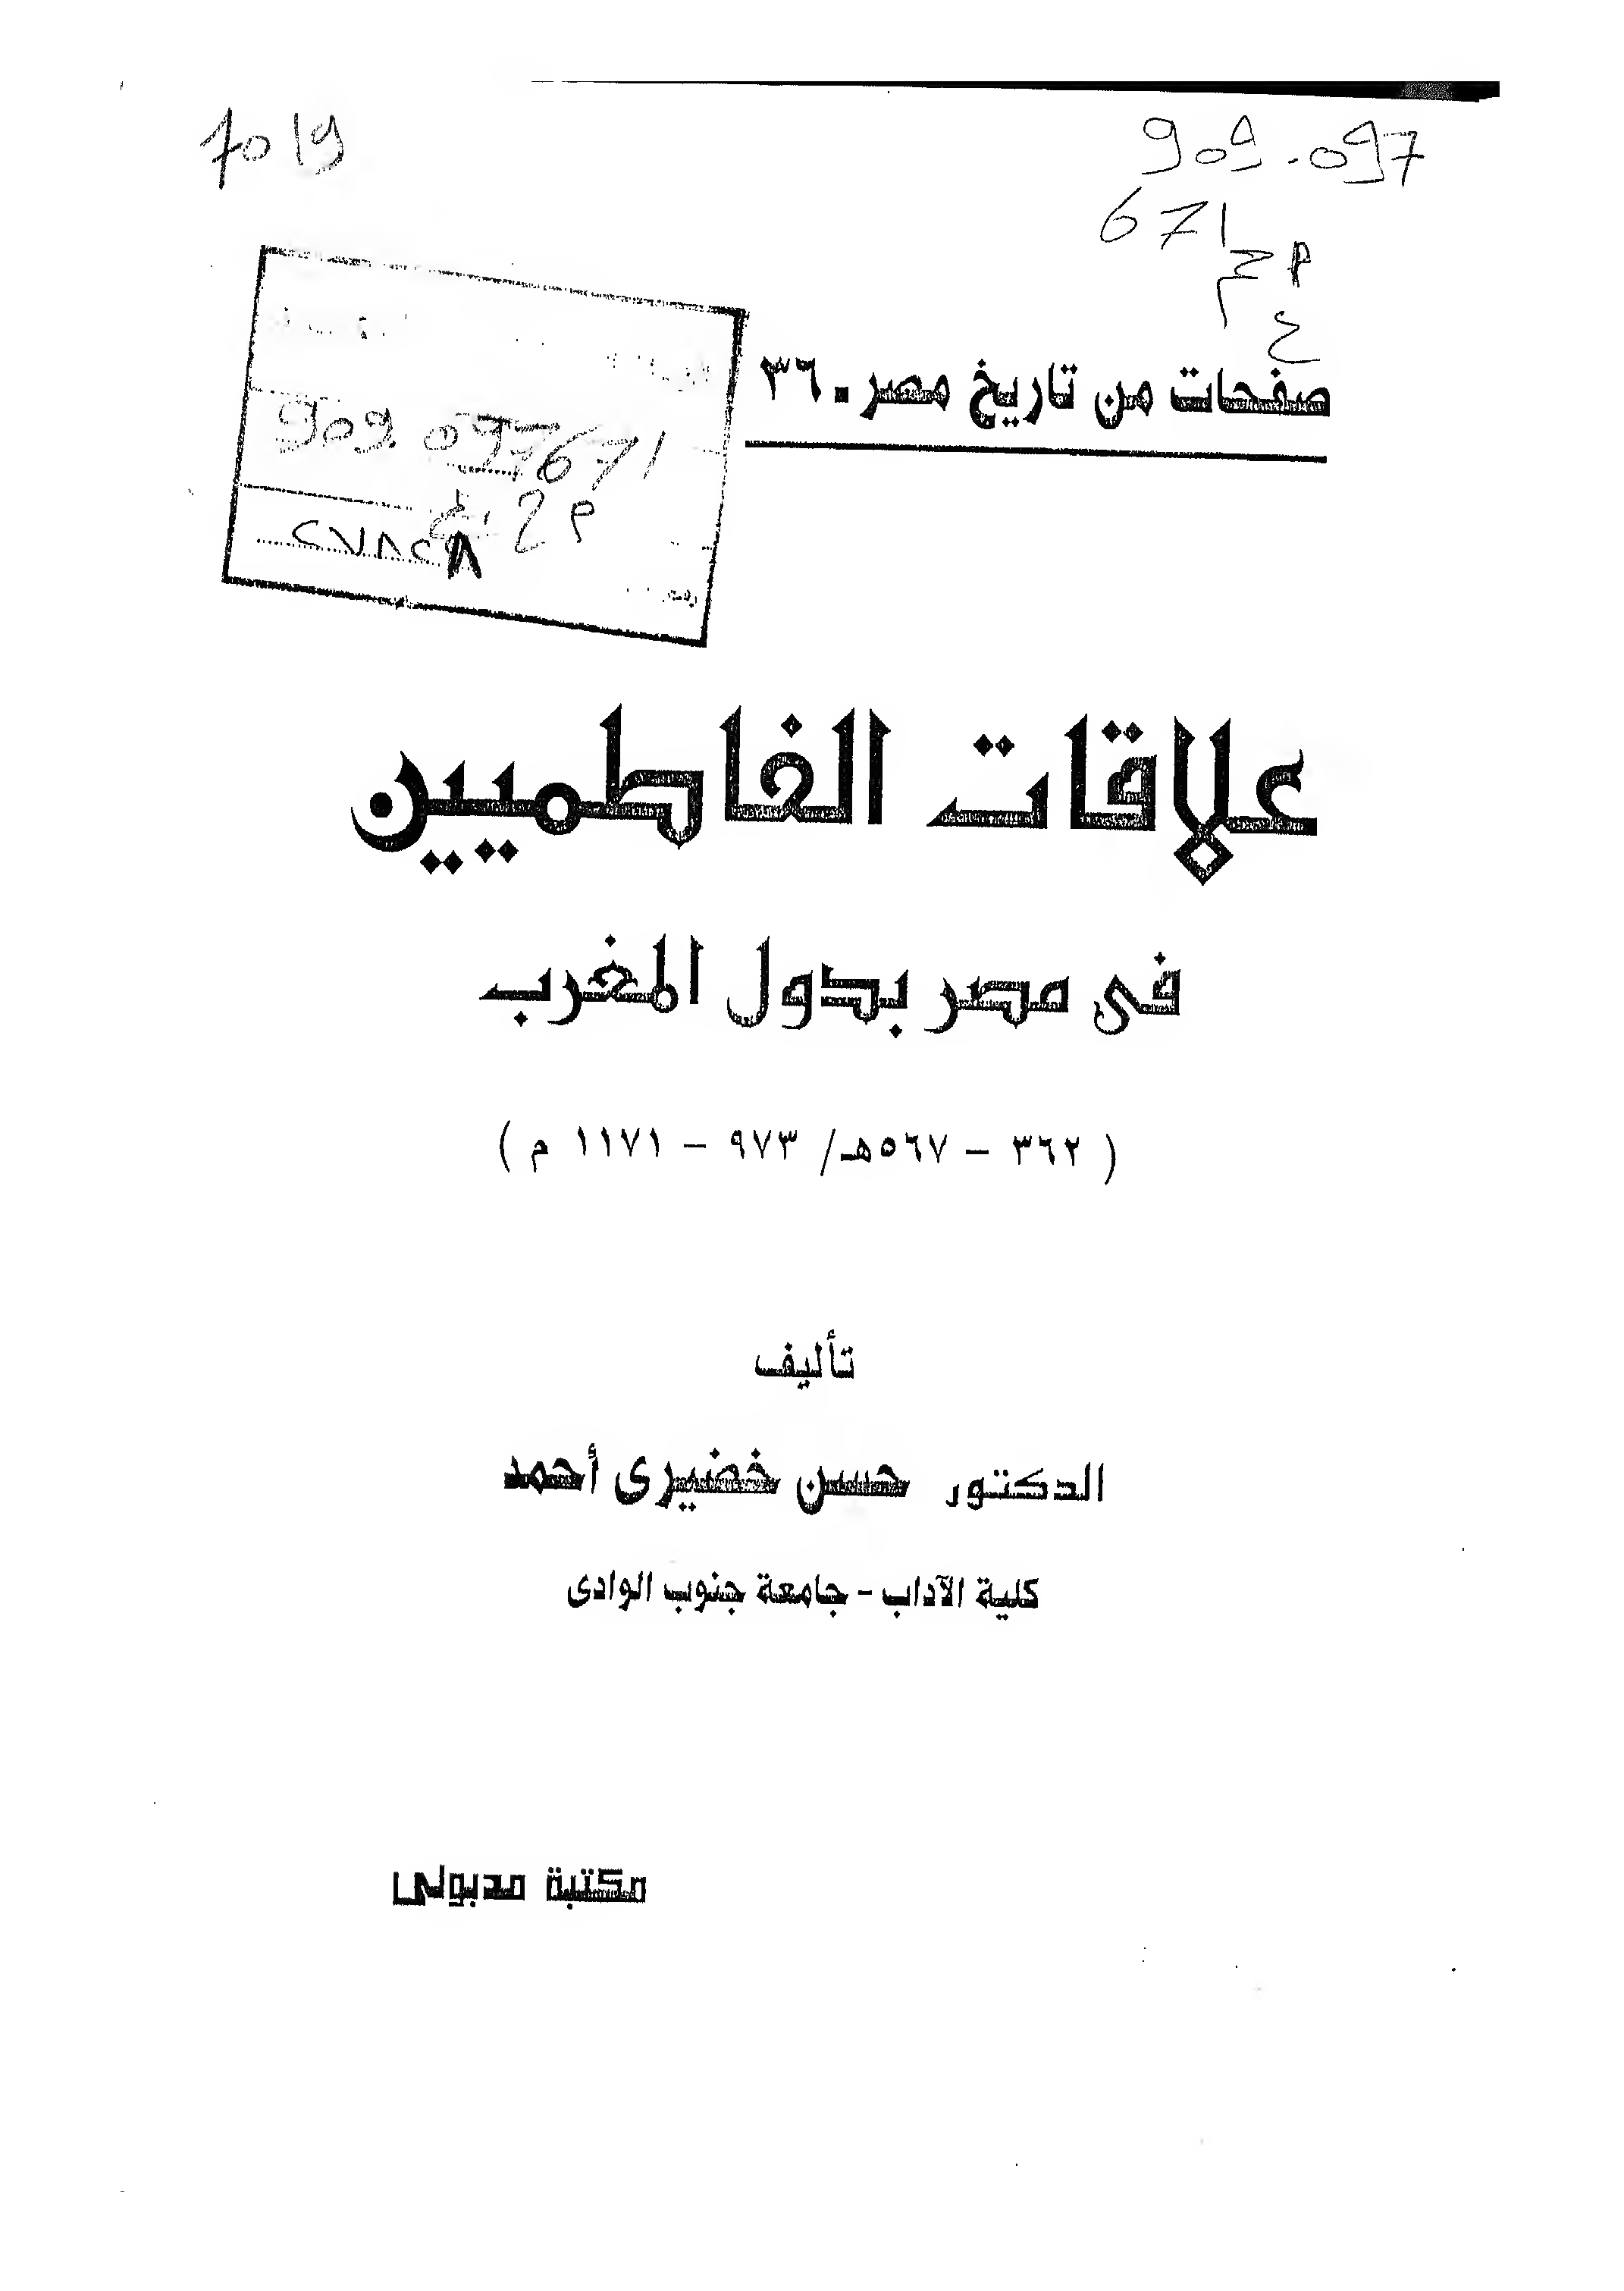 7019
909.097
671
صفحات من تاريخ مصر . ٣٦
909.097671
علاقات الفاطميين
فى مصر بدول المغرب
( ٣٦٢ – ٥٦٧هـ/ ٩٧٣ – ١١٧١ م )
تأليف
الدكتور حسن خضيرى أحمد
كلية الآداب - جامعة جنوب الوادى
مكتبة مدبولى